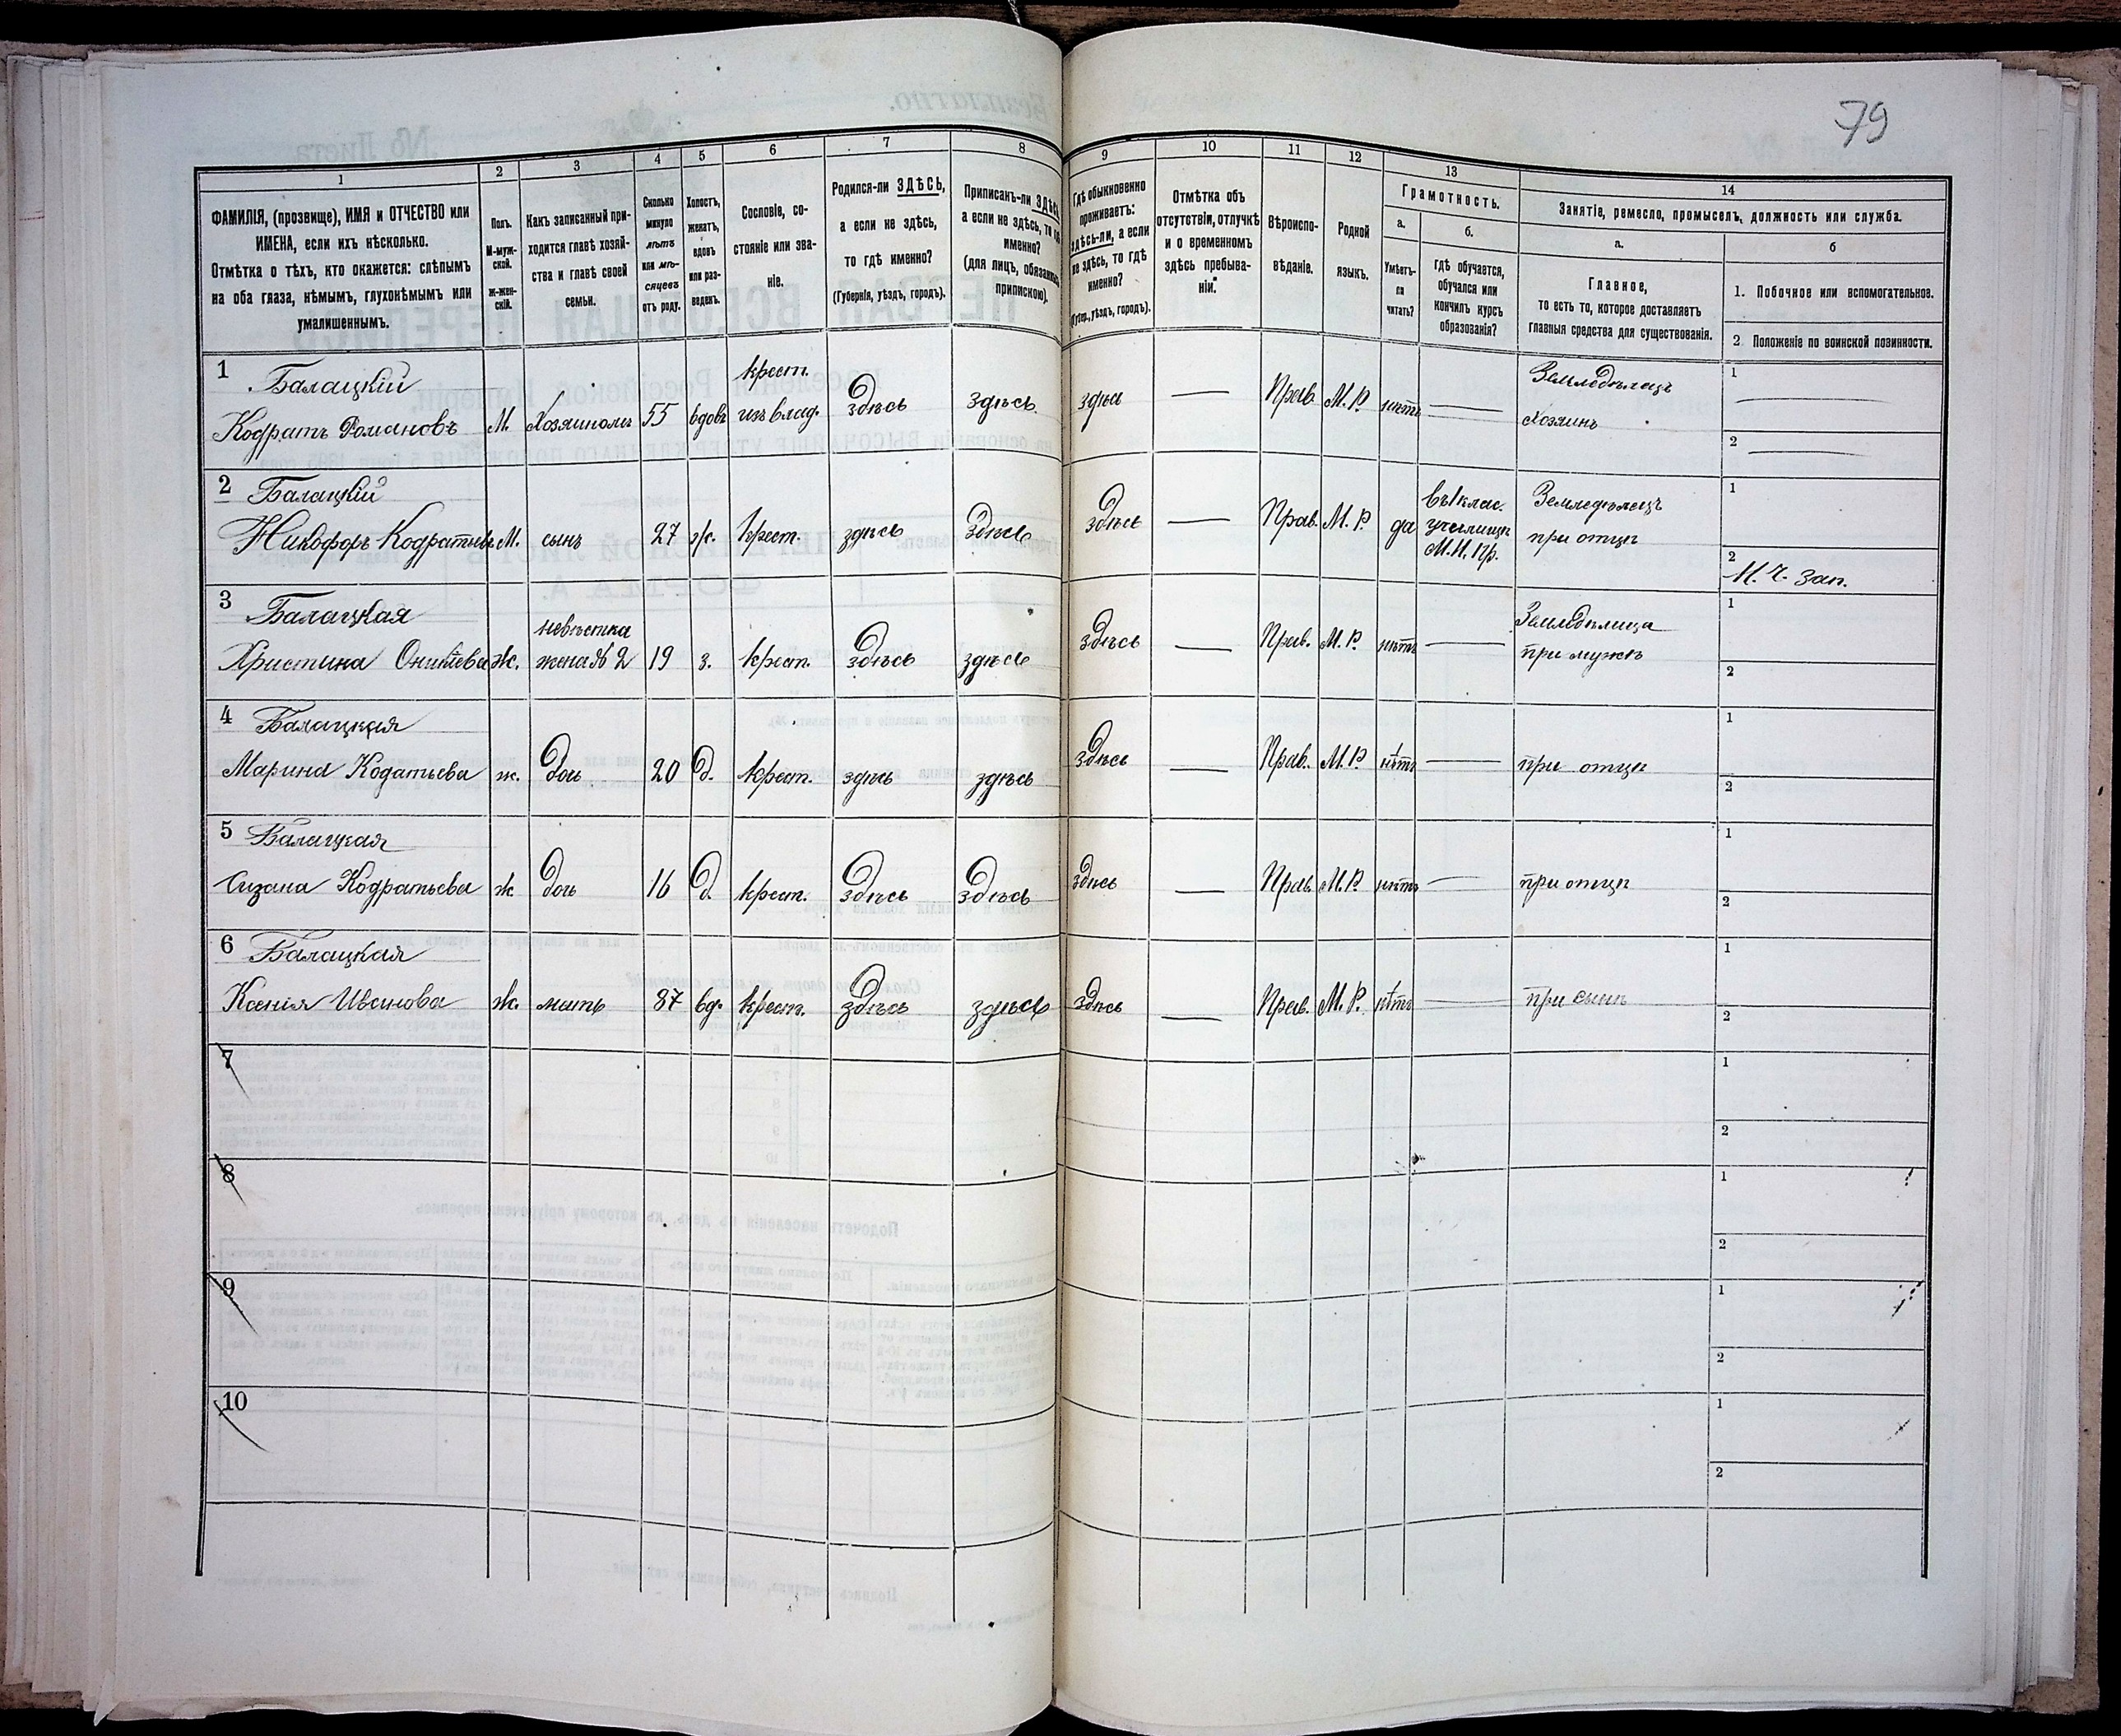 79
1 2 3 4 5 6 7 8 9 10 11 12 13 14
ФАМИЛІЯ, (прозвище), ИМЯ и ОТЧЕСТВО или
ИМЕНА, если ихъ нѣсколько.
Отмѣтка о тѣхъ, кто окажется: слѣпымъ
на оба глаза, нѣмымъ, глухонѣмымъ или
умалишеннымъ.
Полъ.
М-муж-
ской.
Ж-жен-
скій.
Какъ записанный при-
ходится главѣ хозяй-
ства и главѣ своей
семьи.
Сколько
минуло
лѣтъ
или мѣ-
сяцевъ
отъ роду.
Холостъ,
женатъ,
вдовъ
или раз-
веденъ.
Сословіе, со-
стояніе или зва-
ніе.
Родился-ли ЗДѢСЬ,
а если не здѣсь,
то гдѣ именно?
(Губернія, уѣздъ, городъ).
Приписанъ-ли ЗДѢСЬ,
а если не здѣсь, то гдѣ
именно?
(для лицъ, обязанныхъ
припискою).
Гдѣ обыкновенно
проживаетъ:
здѣсь-ли, а если
не здѣсь, то гдѣ
именно?
(Губер., уѣздъ, городъ).
Отмѣтка объ
отсутствіи, отлучкѣ
и о временномъ
здѣсь пребыва-
ніи.
Вѣроиспо-
вѣданіе.
Родной
языкъ.
Грамотность.
а.
Умѣетъ-
ли
читать?
б.
гдѣ обучается,
обучался или
кончилъ курсъ
образованія?
Занятіе, ремесло, промыселъ, должность или служба.
а.
Главное,
то есть то, которое доставляетъ
главныя средства для существованія.
б
1. Побочное или вспомогательное.
2 Положеніе по воинской повинности.
1 Балацкій крест. Земледѣлецъ 1
Кодратъ Романовъ М. Хозяинъ 55 вдовъ изъ влад. здѣсь здѣсь здѣсь — Прав. М. Р. нѣтъ — хозяинъ 2
2 Балацкій въ 1 клас. Земледѣлецъ 1
Никофоръ Кодратьевъ М. сынъ 27 ж. крест. здѣсь здѣсь здѣсь — Прав. М. Р. да училищѣ при отцѣ
М. Н. Пр. 2
М. Ч. зап.
3 Балацкая невѣстка Земледѣлица 1
Христина Оникіева ж. жена № 2 19 з. крест. здѣсь здѣсь здѣсь — Прав. М. Р. нѣтъ — при мужѣ 2
4 Балацкая 1
Марина Кодатьева ж. дочь 20 д. крест. здѣсь здѣсь здѣсь — Прав. М. Р. нѣтъ — при отцѣ 2
5 Балацкая 1
Сизана Кодратьева ж. дочь 16 д. крест. здѣсь здѣсь здѣсь — Прав. М. Р. нѣтъ — при отцѣ 2
6 Балацкая 1
Ксенія Иванова ж. мать 87 вд. крест. здѣсь здѣсь здѣсь — Прав. М. Р. нѣтъ — при сынѣ 2
7 1
2
8 1
2
9 1
2
10 1
2